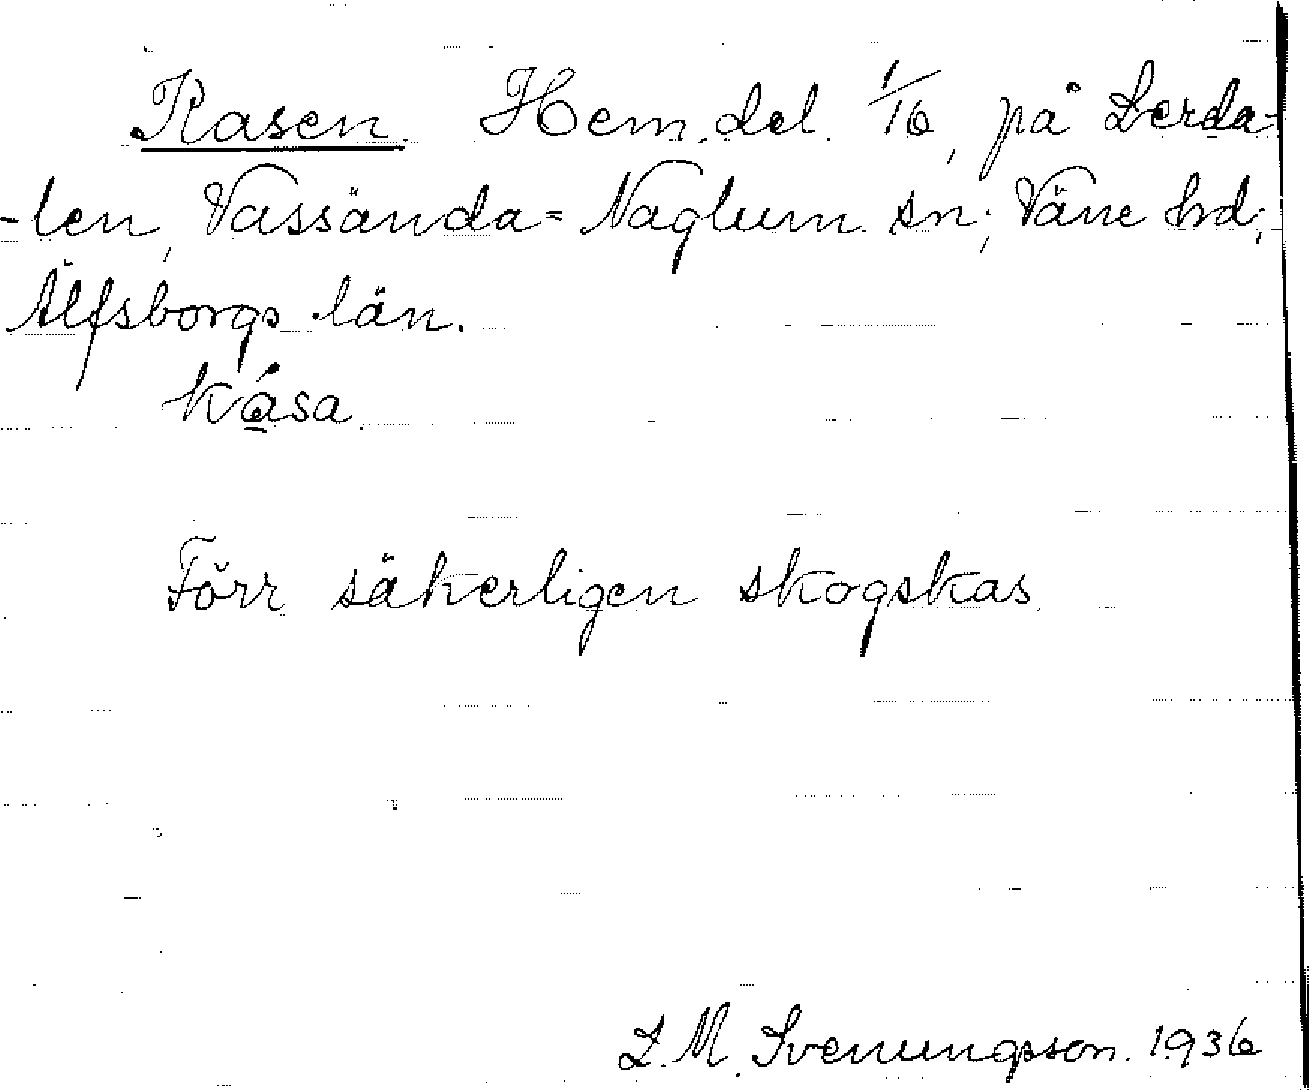 Kasen. Hem. del. 1/16, på Lerda-
-len, Vassända=Naglum sn; Väne hd;
Älfsborgs län.
kåsa.
Förr säkerligen skogskas.
L. M. Svenungsson. 1936